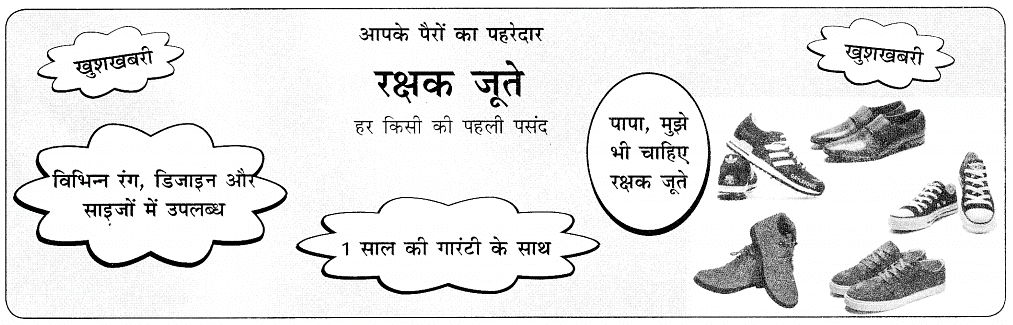 खुशखबरी
आपके पैरों का पहरेदार
खुशखबरी
रक्षक जूते
हर किसी की पहली पसंद
पापा, मुझे
भी चाहिए
रक्षक जूते
विभिन्न रंग, डिजाइन और
साइजों में उपलब्ध
1 साल की गारंटी के साथ